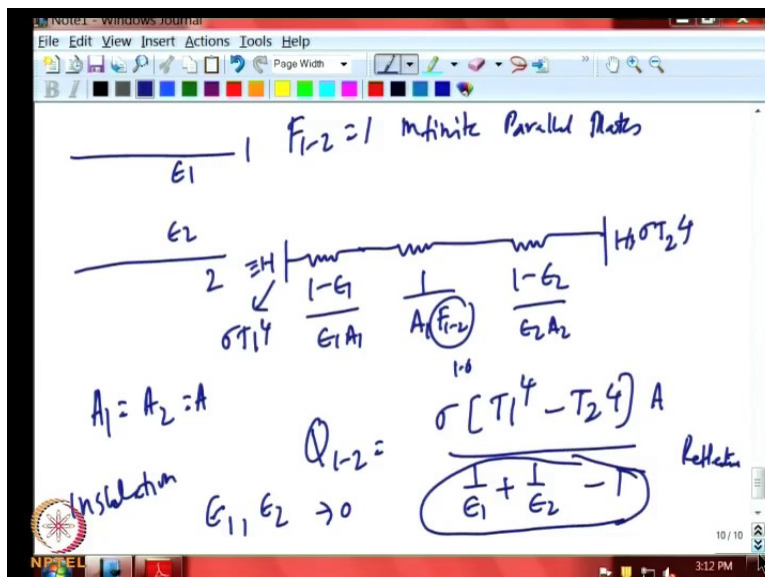 Note1 - Windows Journal
File Edit View Insert Actions Tools Help
Page Width
B I
1 F1-2 = 1 Infinite Parallel Plates
ϵ1
ϵ2
2
σT1⁴
σT2⁴
1-ϵ1 / ϵ1A1
1 / A1F1-2
1-ϵ2 / ϵ2A2
1.0
A1 = A2 = A
Q1-2 = σ[T1⁴ - T2⁴] A / 1/ϵ1 + 1/ϵ2 - 1
Insulation
ϵ1, ϵ2 → 0
10 / 10
NPTEL
3:12 PM